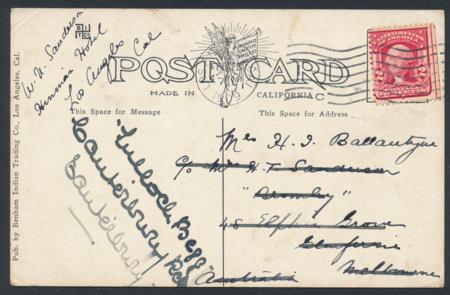 W. H. Sanderson
Hotel
Los Angeles Cal
POST CARD
MADE IN CALIFORNIA
This Space for Message
This Space for Address
UNITED STATES OF AMERICA
Mrs H. I. Ballantyne
C/o Mr H. T. Sanderson
"Bromley"
45 Elphin Grove
Glenferrie
Melbourne
Australia
"Tulloch Begg"
Canterbury Rd
Canterbury
Pub. by Benham Indian Trading Co., Los Angeles, Cal.